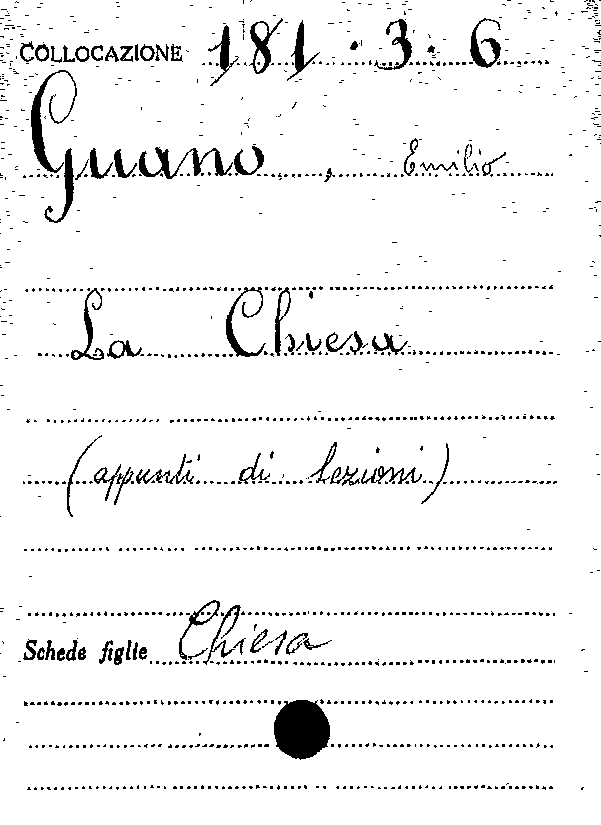 COLLOCAZIONE 181.3.6
Guano, Emilio
La Chiesa
(appunti di lezioni)
Schede figlie Chiesa